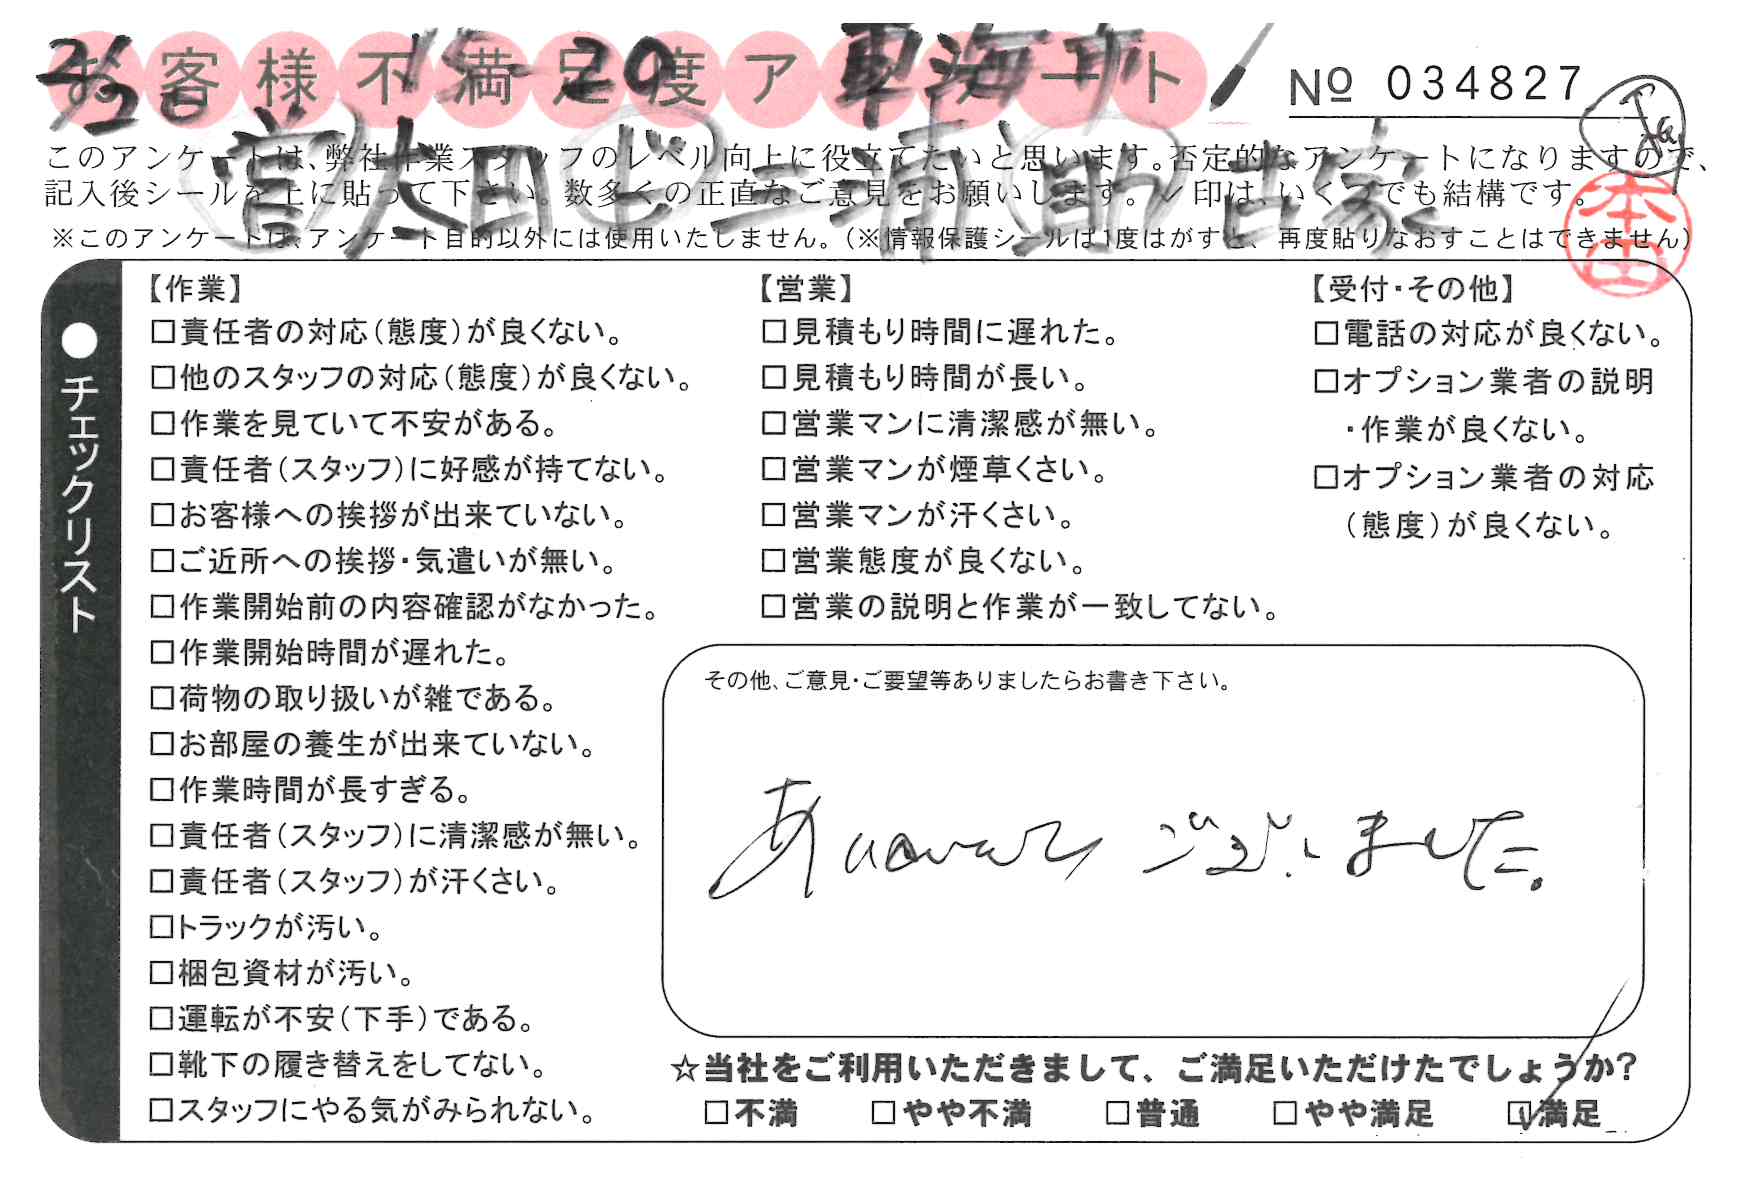 お客様不満足度アンケート
2/28 15-20 東海市
№ 034827
このアンケートは、弊社作業スタッフのレベル向上に役立てたいと思います。否定的なアンケートになりますので、
記入後シールを上に貼って下さい。数多くの正直なご意見をお願いします。✓印は、いくつでも結構です。
※このアンケートは、アンケート目的以外には使用いたしません。（※情報保護シールは1度はがすと、再度貼りなおすことはできません）
本田
●チェックリスト
【作業】
□責任者の対応（態度）が良くない。
□他のスタッフの対応（態度）が良くない。
□作業を見ていて不安がある。
□責任者（スタッフ）に好感が持てない。
□お客様への挨拶が出来ていない。
□ご近所への挨拶・気遣いが無い。
□作業開始前の内容確認がなかった。
□作業開始時間が遅れた。
□荷物の取り扱いが雑である。
□お部屋の養生が出来ていない。
□作業時間が長すぎる。
□責任者（スタッフ）に清潔感が無い。
□責任者（スタッフ）が汗くさい。
□トラックが汚い。
□梱包資材が汚い。
□運転が不安（下手）である。
□靴下の履き替えをしてない。
□スタッフにやる気がみられない。
【営業】
□見積もり時間に遅れた。
□見積もり時間が長い。
□営業マンに清潔感が無い。
□営業マンが煙草くさい。
□営業マンが汗くさい。
□営業態度が良くない。
□営業の説明と作業が一致してない。
【受付・その他】
□電話の対応が良くない。
□オプション業者の説明
・作業が良くない。
□オプション業者の対応
（態度）が良くない。
その他、ご意見・ご要望等ありましたらお書き下さい。
ございました。
☆当社をご利用いただきまして、ご満足いただけたでしょうか？
□不満 □やや不満 □普通 □やや満足 ☑満足